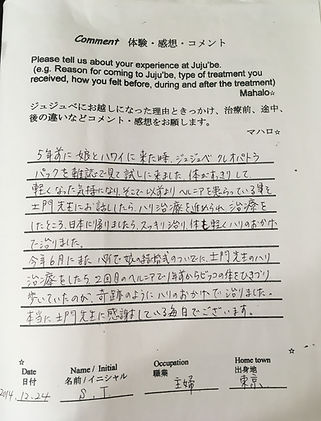 Comment 体験・感想・コメント
Please tell us about your experience at Juju'be.
(e.g. Reason for coming to Juju'be, type of treatment you
received, how you felt before, during and after the treatment)
Mahalo☆
ジュジュベにお越しになった理由ときっかけ、治療前、途中、
後の違いなどコメント・感想をお願します。
マハロ☆
5年前に娘とハワイに来た時、ジュジュベ クレオパトラ
パックを雑誌で見て試しに来ました。体がすっきりして
軽くなった気持になり、そこで以前よりヘルニアを患らっている事を
土門先生にお話ししたら、ハリ治療を進められ 治療を
したところ、日本に帰りましたら、スッキリ治り、体も軽くハリのおかげ
で治りました。
今年6月にまた、ハワイで娘の結婚式のついでに、土門先生のハリ
治療をしたら、2回目のヘルニアで1年前からビッコの体をひきづり
歩いていたのが、奇跡のようにハリのおかげで治りました。
本当に土門先生に感謝している毎日でございます。
☆ ☆
Date Name / Initial Occupation Home town
日付 名前 / イニシャル 職業 出身地
2014.12.24 S.I 主婦 東京